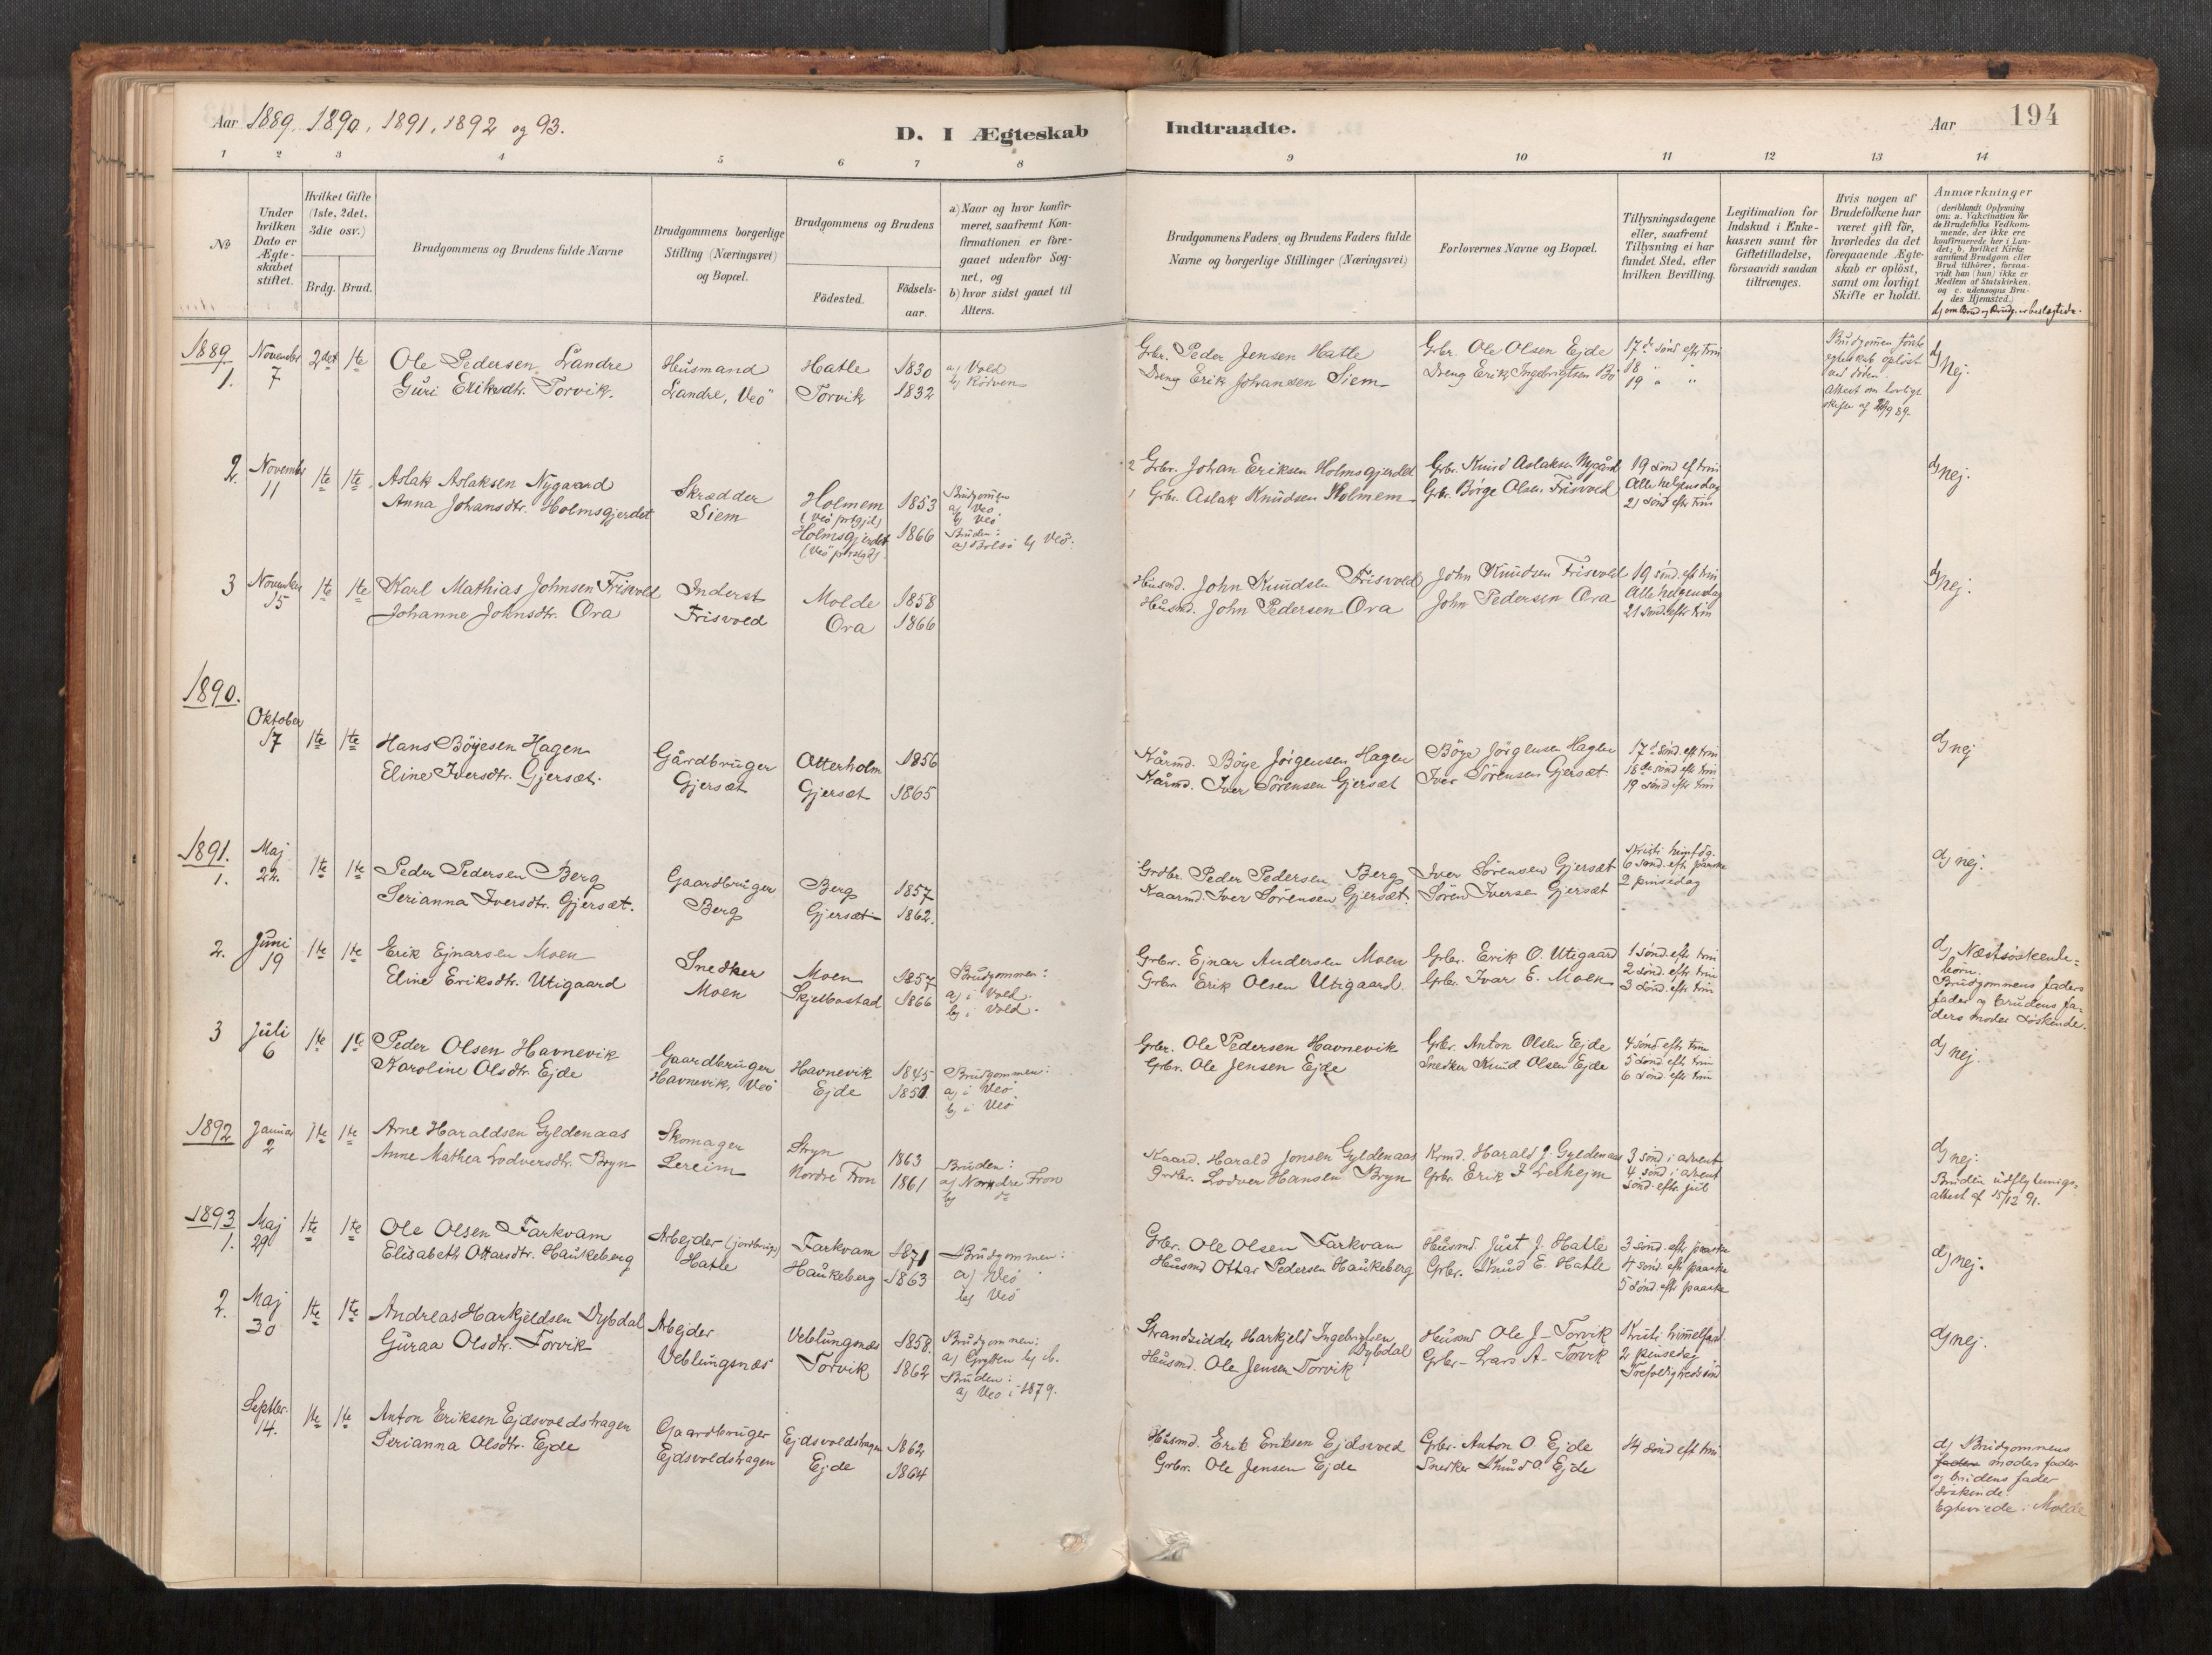 Aar 1889. 1890, 1891, 1892 og 93.
D. I Ægteskab
Indtraadte.
Aar
194
1 2 3 4 5 6 7 8 9 10 11 12 13 14
No
Under hvilken Dato er Ægteskabet stiftet.
Hvilket Gifte (1ste, 2det, 3die osv.)
Brdg. Brud.
Brudgommens og Brudens fulde Navne
Brudgommens borgerlige Stilling (Næringsvei) og Bopæl.
Brudgommens og Brudens
Födested.
Födselsaar.
a) Naar og hvor konfirmeret, saafremt Konfirmationen er foregaaet udenfor Sognet, og
b) hvor sidst gaaet til Alters.
Brudgommens Faders og Brudens Faders fulde Navne og borgerlige Stillinger (Næringsvei)
Forlovernes Navne og Bopæl.
Tillysningsdagene eller, saafremt Tillysning ei har fundet Sted, efter hvilken Bevilling.
Legitimation for Indskud i Enkekassen samt for Giftetilladelse, forsaavidt saadan tiltrænges.
Hvis nogen af Brudefolkene har været gift för, hvorledes da det foregaaende Ægteskab er oplöst, samt om lovligt Skifte er holdt.
Anmærkninger
(deriblandt Oplysning om: a. Vakcination for de Brudefolks Vedkommende, der ikke ere konfirmerede her i Landet; b. hvilket Kirkesamfund Brudgom eller Brud tilhörer, forsaavidt han (hun) ikke er Medlem af Statskirken, og c. udensogns Brudes Hjemsted.)
d) om Brud og Brudg. er beslægtede.
1889
1.
November
7
2det 1te
Ole Pedersen Landre
Guri Eriksdtr. Torvik.
Husmand
Landre, Veö
Hatle 1830
Torvik 1832
a) Vold
b) Rödven
Grbr. Peder Jensen Hatle
Dreng Erik Johansen Siem
Grbr. Ole Olsen Ejde
Dreng Erik Ingebrigtsen Bö
17de sönd efter trin
18 " "
19 " "
Brudgomen förste egteskab oplöst ved döden.
Attest om lovligt skifte af
d) Nej.
2.
November
11
1te 1te
Aslak Aslaksen Nygaard
Anna Johansdtr. Holmsgjerdet
Skrædder
Siem
Holmem 1853
(Veö prgjd)
Holmsgjerdet 1866
(Veö prstgd)
Brudgommen
a) Veö
b) Veö
Bruden:
a) Bolsö b) Veö.
2 Grbr. Johan Eriksen Holmsgjerdet
1 Grbr. Aslak Knudsen Holmem
Grbr. Knud Aslaksen Nygård
Grbr. Börge Olsen Frisvold
19 sönd ef trin
Alle helgensdag
21 sönd efter trin
d) nej.
3
November
15
1te 1te
Karl Mathias Johnsen Frisvold
Johanne Johnsdtr. Ora
Inderst
Frisvold
Molde 1858
Ora 1866
Husmd. John Knudsen Frisvold
Husmd. John Pedersen Ora
John Knudsen Frisvold
John Pedersen Ora
19 sönd. eft trin
Alle helgensdag
21 sönd. eftr trin
d) nej.
1890.
Oktober
17
1te 1te
Hans Böyesen Hagen
Eline Iversdtr. Gjersæt.
Gårdbruger
Gjersæt
Otterholm 1856
Gjersæt 1865
Kårmd. Böye Jörgensen Hagen
Kårmd. Iver Sörensen Gjersæt
Böye Jörgensen Hagen
Iver Sörensen Gjersæt
17de sönd. eft trin
18de sönd eftr trin
19 sönd eftr trin
d) nej
1891.
1.
Maj
22.
1te 1te
Peder Pedersen Berg
Serianna Iversdtr. Gjersæt.
Gaardbruger
Berg
Berg 1857
Gjersæt 1862.
Grdbr. Peder Pedersen Berg
Kaarmd. Iver Sörensen Gjersæt.
Iver Sörensen Gjersæt
Sören Iversen Gjersæt
Kristi himfdg.
6 sönd. eft paaske
2 pinsedag
d) nej.
2.
Juni
19
1te 1te
Erik Ejnarsen Moen
Eline Eriksdtr. Utigaard
Snedker
Moen
Moen 1857
Skjelbostad 1866
Brudgommen:
a) i Vold.
b) i Vold.
Grbr. Ejnar Andersen Moen
Grbr. Erik Olsen Utigaard.
Grbr. Erik O. Utigaard
Grbr. Ivar E. Moen
1 sönd. eftr trin
2 sönd. eftr trin
3 sönd. eftr trin
d) Næstsöskendebörn.
Brudgommens faders fader og brudens faders moder söskende.
3
Juli
6
1te 1te
Peder Olsen Havnevik
Karoline Olsdtr. Ejde
Gaardbruger
Havnevik, Veö
Havnevik 1845
Ejde 1850.
Brudgommen:
a) i Veö
b) i Veö
Grbr. Ole Pedersen Havnevik
Grbr. Ole Jensen Ejde
Grbr. Anton Olsen Ejde
Snedker Knud Olsen Ejde
4 sönd eftr trin
5 sönd. eftr trin
6 sönd. eftr trin
d) nej.
1892
Januar
2
1te 1te
Arne Haraldsen Gyldenaas
Anne Mathea Lodversdtr. Bryn
Skomager
Lereim
Stryn 1863
Nordre Fron 1861
Bruden:
a) Nordre Fron
b) do
Kaard. Harald Jonsen Gyldenaas
Grdbr. Lodver Hansen Bryn
Krmd. Harald J. Gyldenaas
Grbr. Erik I Lerhejm
3 sönd i advent
4 sönd i advent
sönd. eftr jul
d) nej.
Bruden udflytningsattest af 15/12 91.
1893
1.
Maj
29
1te 1te
Ole Olsen Farkvam
Elisabeth Ottarsdtr. Haukeberg
Arbejder (jordbrugs)
Hatle
Farkvam 1871
Haukeberg 1863
Brudgommen:
a) Veö
b) Veö
Grbr. Ole Olsen Farkvam
Husmd Ottar Pedersen Haukeberg
Husmd. Just J. Hatle
Grbr. Knud E. Hatle
3 sönd. eftr paaske
4 sönd. eftr paaske
5 sönd. eftr paaske
d) nej.
2.
Maj
30
1te 1te
Andreas Harkjeldsen Dybdal
Guraa Olsdtr. Torvik
Arbejder
Veblungsnæs
Veblungsnæs 1858.
Torvik 1862
Brudgommen:
a) Grytten b) do.
Bruden:
a) Veö i 1879.
Strandsidder Harkjeld Ingebrigtsen Dybdal
Husmd. Ole Jensen Torvik
Husmd Ole J. Torvik
Grbr. Lars A. Torvik
Kristi himmelfart.
2 pinsedag
Trefoldighedssön
d) nej.
Septbr.
14.
1te 1te
Anton Eriksen Ejdsvoldshagen
Serianna Olsdtr. Ejde
Gaardbruger
Ejdsvoldshagen
Ejdsvoldshagen 1862
Ejde 1864
Husmd. Erik Eriksen Ejdsvold
Grbr. Ole Jensen Ejde
Grbr. Anton O. Ejde
Snedker Knud O. Ejde
14 sönd eft trin
d) Brudgommens
faders moders fader
og brudens fader
söskende.
Egteviede i Molde